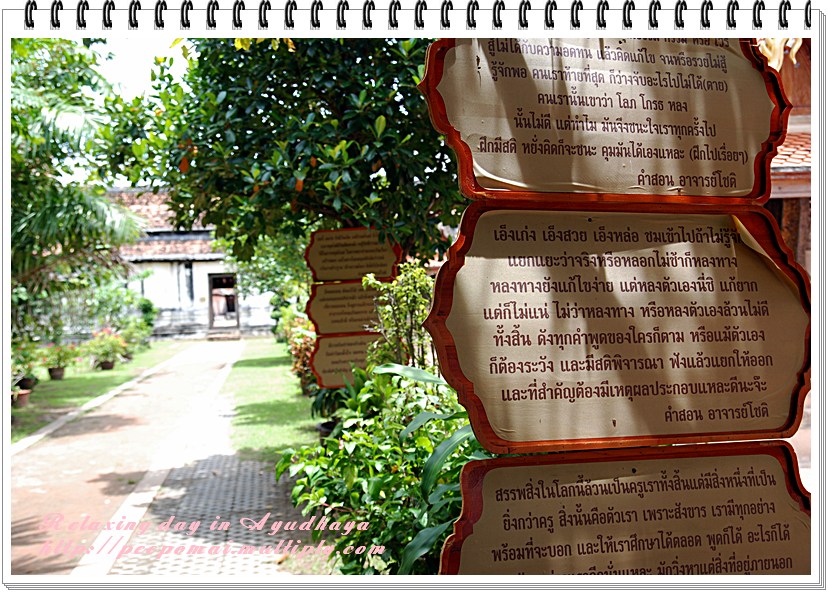 สู้ไม่ได้กับความอดทน แล้วคิดแก้ไข จนหรือรวยไม่สู้
รู้จักพอ คนเราท้ายที่สุด ก็ว่างจับอะไรไปไม่ได้(ตาย)
คนเรานั้นเขาว่า โลภ โกรธ หลง
นั้นไม่ดี แต่ทำไม มันจึงชนะใจเราทุกครั้งไป
ฝึกมีสติ หยั่งคิดก็จะชนะ คุมมันได้เองแหละ (ฝึกไปเรื่อยๆ)
คำสอน อาจารย์โชติ
เอ็งเก่ง เอ็งสวย เอ็งหล่อ ชมเข้าไปถ้าไม่รู้จัก
แยกแยะว่าจริงหรือหลอกไม่ช้าก็หลงทาง
หลงทางยังแก้ไขง่าย แต่หลงตัวเองนี่ซิ แก้ยาก
แต่ก็ไม่แน่ ไม่ว่าหลงทาง หรือหลงตัวเองล้วนไม่ดี
ทั้งสิ้น ดังทุกคำพูดของใครก็ตาม หรือแม้ตัวเอง
ก็ต้องระวัง และมีสติพิจารณา ฟังแล้วแยกให้ออก
และที่สำคัญต้องมีเหตุผลประกอบแหละดีนะจ๊ะ
คำสอน อาจารย์โชติ
สรรพสิ่งในโลกนี้ล้วนเป็นครูเราทั้งสิ้นแต่มีสิ่งหนึ่งที่เป็น
ยิ่งกว่าครู สิ่งนั้นคือตัวเรา เพราะสังขาร เรามีทุกอย่าง
พร้อมที่จะบอก และให้เราศึกษาได้ตลอด พูดก็ได้ อะไรก็ได้
มักวิ่งหาแต่สิ่งที่อยู่ภายนอก
Relaxing day in Ayudhaya
http://peepomat.multiply.com